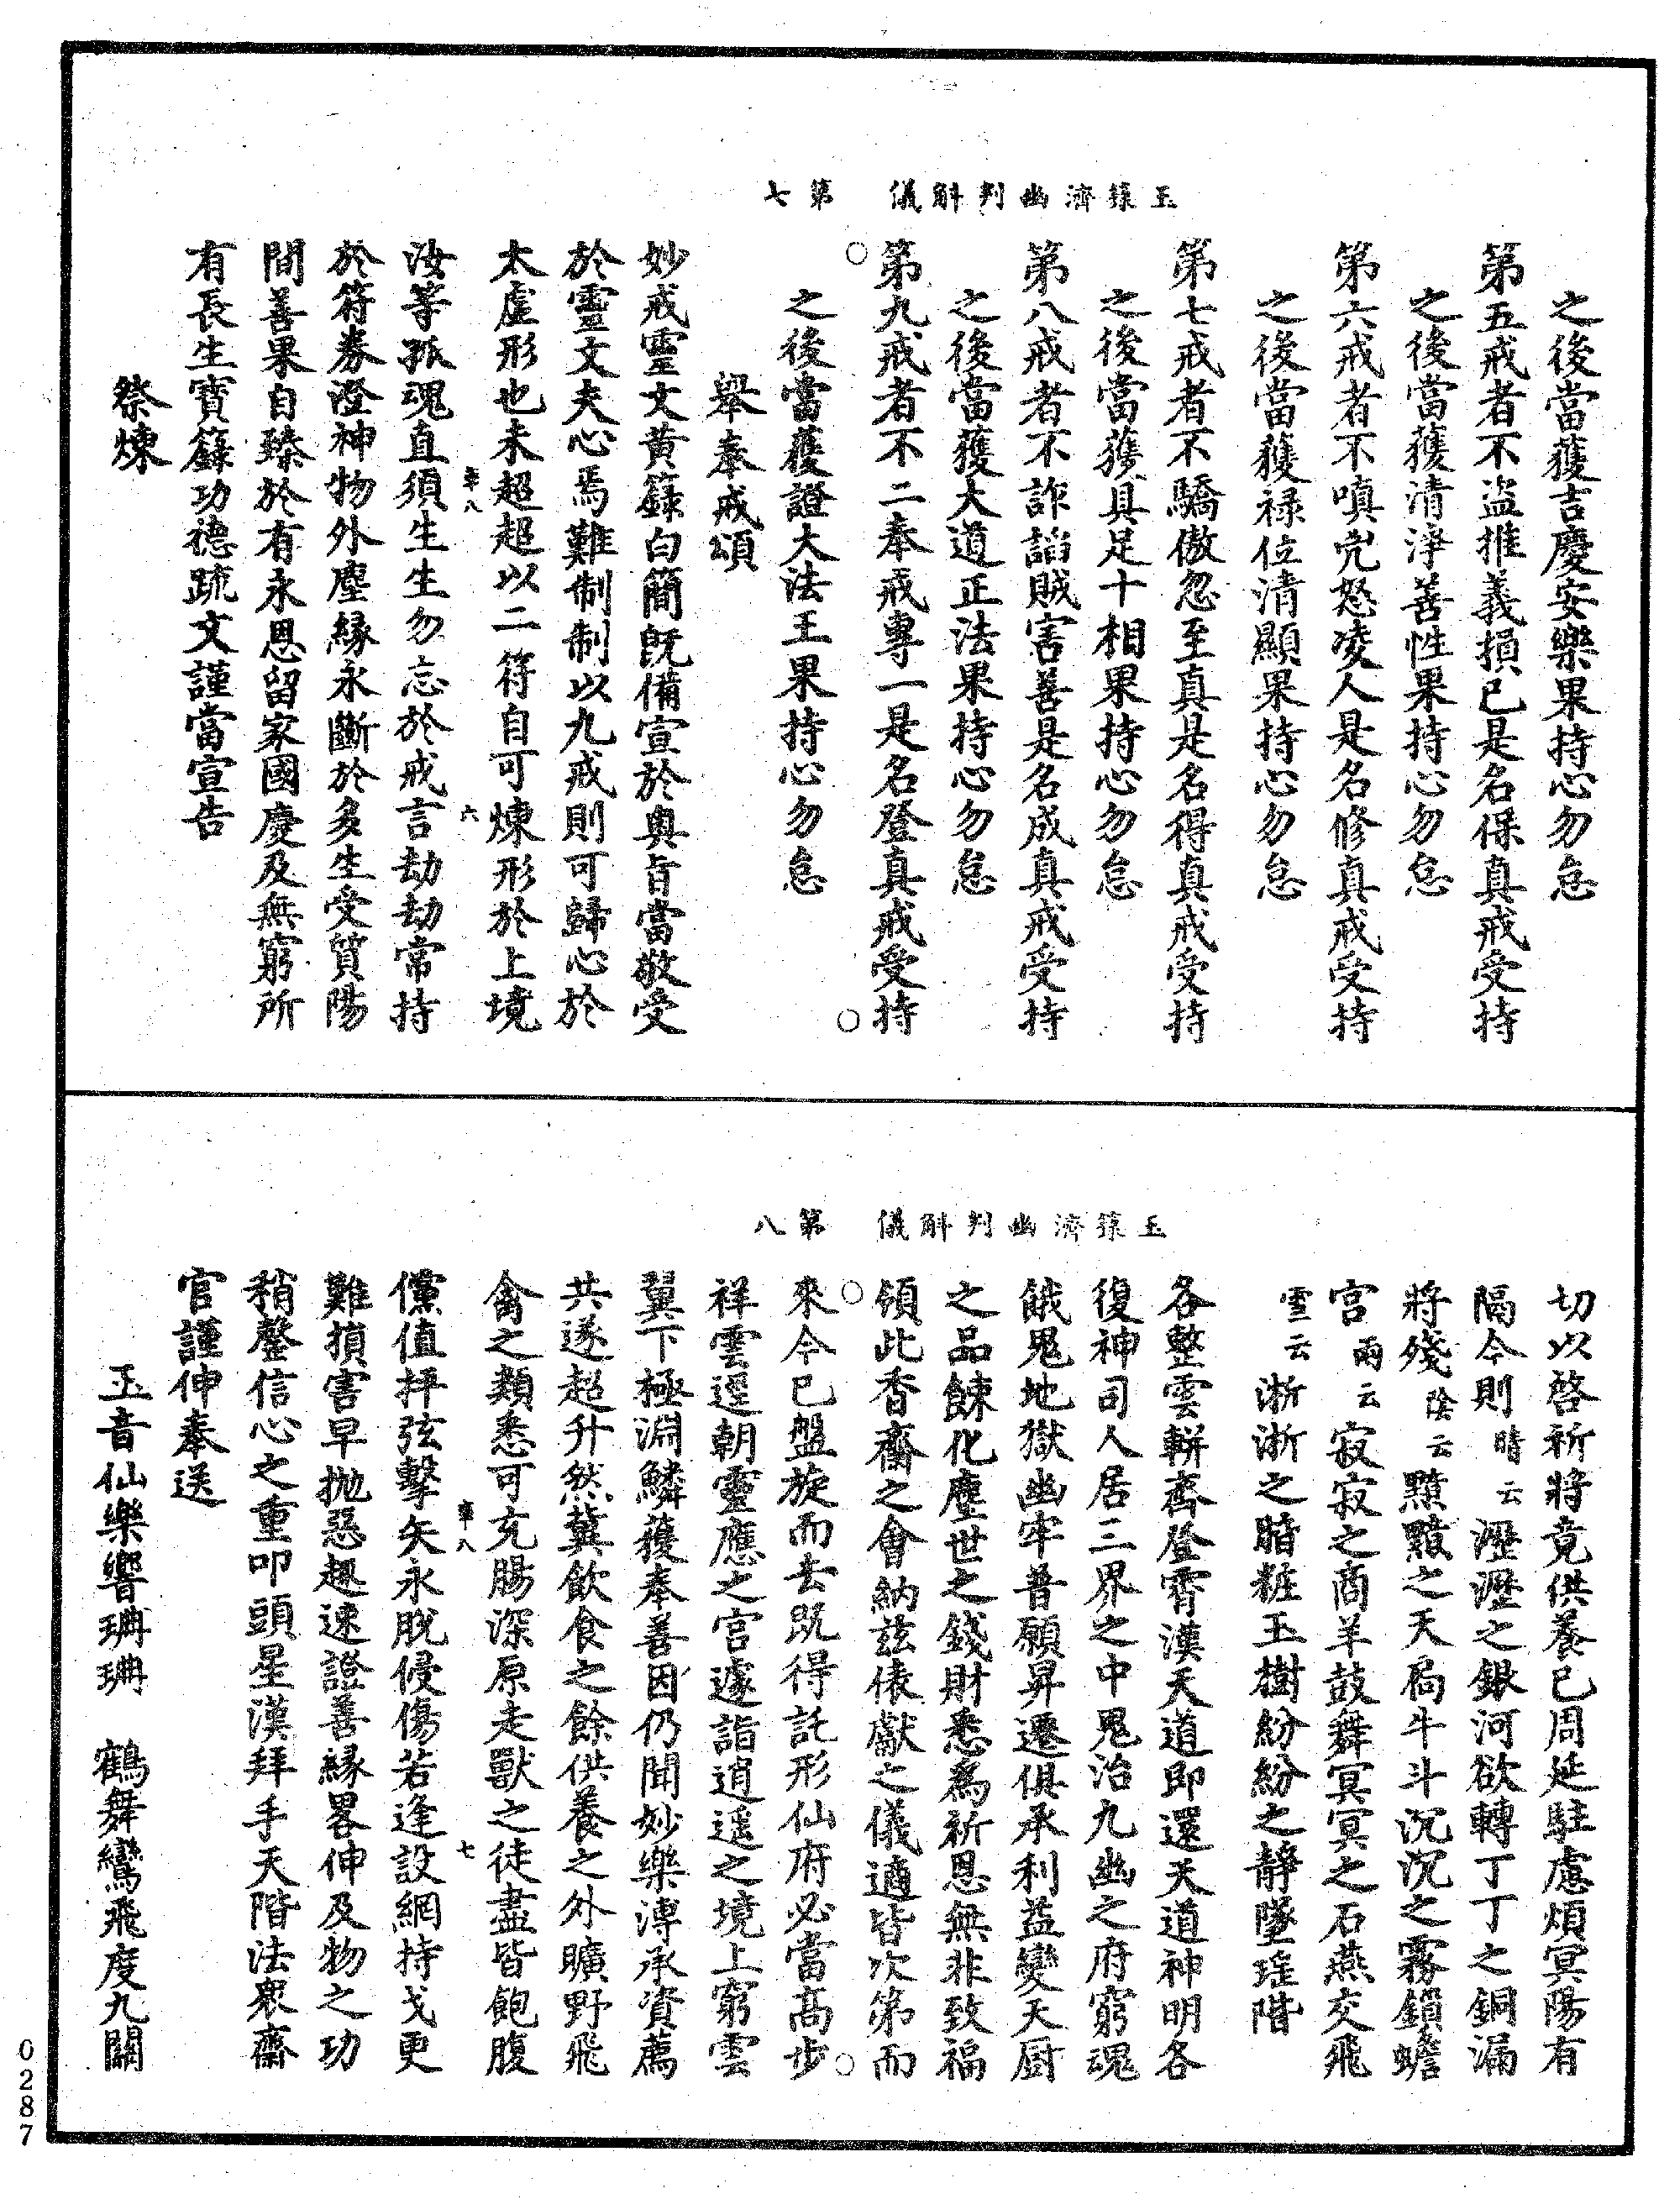 玉籙濟幽判斛儀　第七
之後當獲吉慶安樂果持心勿怠
第五戒者不盜推義損己是名保真戒受持
之後當獲清淨善性果持心勿怠
第六戒者不嗔兇怒凌人是名修真戒受持
之後當獲祿位清顯果持心勿怠
第七戒者不驕傲忽至真是名得真戒受持
之後當獲具足十相果持心勿怠
第八戒者不詐諂賊害善是名成真戒受持
之後當獲大道正法果持心勿怠
第九戒者不二奉戒專一是名登真戒受持
之後當獲證大法王果持心勿怠
舉奉戒頌
妙戒靈文黃籙白簡既備宣於奧旨當敬受
於靈文夫心焉難制制以九戒則可歸心於
太虛形也未超超以二符自可煉形於上境
汝等孤魂直須生生勿忘於戒言劫劫常持
於符券澄神物外塵緣永斷於多生受質陽
間善果自臻於有永恩留家國慶及無窮所
有長生寶籙功德疏文謹當宣告
祭煉
玉籙濟幽判斛儀　第八
切以啓祈將竟供養已周延駐慮煩冥陽有
隔今則晴云瀝瀝之銀河欲轉丁丁之銅漏
將殘陰云黯黯之天扃牛斗沉沉之霧鎖蟾
宮雨云寂寂之商羊鼓舞冥冥之石燕交飛
雪云淅淅之暗粧玉樹紛紛之靜墜瑤階
各整雲軿齊登霄漢天道即還天道神明各
復神司人居三界之中鬼治九幽之府窮魂
餓鬼地獄幽牢普願昇遷俱承利益變天廚
之品餗化塵世之錢財悉為祈恩無非致福
領此香齋之會納茲俵獻之儀適皆次第而
來今已盤旋而去既得託形仙府必當高步
祥雲逕朝靈應之宮遽詣逍遙之境上窮雲
翼下極淵鱗獲奉善因仍聞妙樂溥承資薦
共遂超升然冀飲食之餘供養之外曠野飛
禽之類悉可充腸深原走獸之徒盡皆飽腹
儻值抨弦擊矢永脫侵傷若逢設網持戈更
難損害早拋惡趣速證善緣畧伸及物之功
稍罄信心之重叩頭星漢拜手天階法眾齋
官謹伸奉送
玉音仙樂響珊珊　鶴舞鸞飛度九關
0287